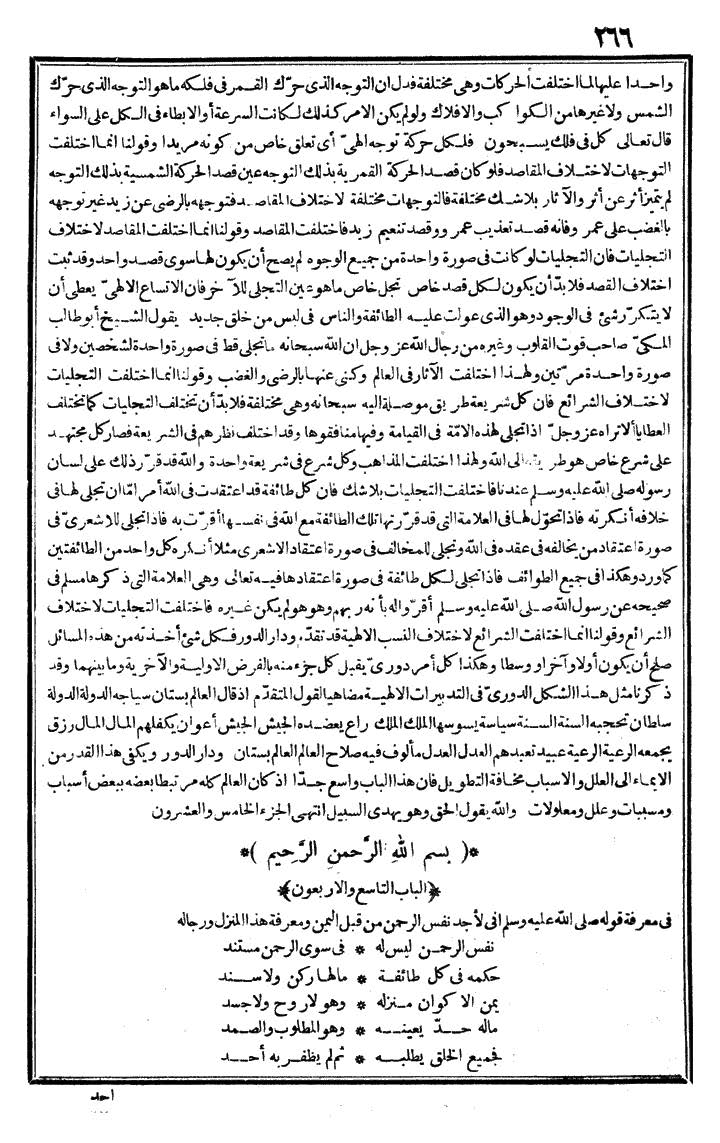 ٢٦٦
واحدا عليها لما اختلفت الحركات وهي مختلفة فدل ان التوجه الذى حرّك القمر فى فلكه ماهو التوجه الذى حرّك
الشمس ولا غيرها من الكوا كب والافلاك ولو لم يكن الامر كذلك لكانت السرعة أو الابطاء فى الكل على السواء
قال تعالى كل فى فلك يسبحون فلكل حركة توجه الهىّ أى تعلق خاص من كونه مريدا وقولنا انما اختلفت
التوجهات لاختلاف المقاصد فلو كان قصد الحركة القمرية بذلك التوجه عين قصد الحركة الشمسية بذلك التوجه
لم يتميز أثر عن أثر والآثار بلاشك مختلفة فالتوجهات مختلفة لاختلاف المقاصد فتوجهه بالرضى عن زيد غير توجهه
بالغضب على عمرو فانه قصد تعذيب عمرو وقصد تنعيم زيد فاختلفت المقاصد وقولنا انما اختلفت المقاصد لاختلاف
التجليات فان التجليات لو كانت فى صورة واحدة من جميع الوجوه لم يصح أن يكون لها سوى قصد واحد وقد ثبت
اختلاف القصد فلابدّ أن يكون لكل قصد خاص تجل خاص ماهو عين التجلى للآخر فان الاتساع الالهىّ يعطى أن
لا يتكرّر شئ فى الوجود وهو الذى عولت عليه الطائفة والناس فى لبس من خلق جديد يقول الشيخ أبو طالب
المكىّ صاحب قوت القلوب وغيره من رجال الله عز وجل ان الله سبحانه ماتجلى قط فى صورة واحدة لشخصين ولا فى
صورة واحدة مرّتين ولهذا اختلفت الآثار فى العالم وكنى عنها بالرضى والغضب وقولنا انما اختلفت التجليات
لاختلاف الشرائع فان كل شريعة طريق موصلة اليه سبحانه وهى مختلفة فلابدّ أن تختلف التجليات كما تختلف
العطايا ألا تراه عز وجلّ اذا تجلى لهذه الامّة فى القيامة وفيها منافقوها وقد اختلف نظرهم فى الشريعة فصار كل مجتهد
على شرع خاص هو طريقه الى الله ولهذا اختلفت المذاهب وكل شرع فى شريعة واحدة والله قد قرّر ذلك على لسان
رسوله صلى الله عليه وسلم عندنا فاختلفت التجليات بلاشك فان كل طائفة قد اعتقدت فى الله أمرا مّا ان تجلى لها فى
خلافه أنكرته فاذا تحوّل لها فى العلامة التى قد قرّرتها تلك الطائفة مع الله فى نفسها أقرّت به فاذا تجلى للاشعرىّ فى
صورة اعتقاد من يخالفه فى عقده فى الله وتجلى للمخالف فى صورة اعتقاد الاشعرى مثلا أنكره كل واحد من الطائفتين
كما ورد وهكذا فى جميع الطوائف فاذا تجلى لكل طائفة فى صورة اعتقادها فيه تعالى وهى العلامة التى ذكرها مسلم فى
صحيحه عن رسول الله صلى الله عليه وسلم أقرّوا له بأنه ربهم وهو هو لم يكن غيره فاختلفت التجليات لاختلاف
الشرائع وقولنا انما اختلفت الشرائع لاختلاف النسب الالهية قد تقدّم ودار الدور فكل شئ أخذته من هذه المسائل
صلح أن يكون أولا وآخرا ووسطا وهكذا كل أمر دورىّ يقبل كل جزء منه بالفرض الاولية والآخرية وما بينهما وقد
ذكرنا مثل هذا الشكل الدورىّ فى التدبيرات الالهية مضاهيا لقول المتقدّم اذ قال العالم بستان سياجه الدولة الدولة
سلطان تحجبه السنة السنة سياسة يسوسها الملك الملك راع يعضده الجيش الجيش أعوان يكفلهم المال المال رزق
يجمعه الرعية الرعية عبيد تعبدهم العدل العدل مألوف فيه صلاح العالم العالم بستان ودار الدور ويكفى هذا القدر من
الايماء الى العلل والاسباب مخافة التطويل فان هذا الباب واسع جدّا اذ كان العالم كله مرتبطا بعضه ببعض أسباب
ومسببات وعلل ومعلولات والله يقول الحق وهو يهدى السبيل انتهى الجزء الخامس والعشرون
*( بسم الله الرَّحمنِ الرَّحِيمِ )*
﴿الباب التاسع والاربعون﴾
فى معرفة قوله صلى الله عليه وسلم انى لأجد نفس الرحمن من قبل اليمن ومعرفة هذا المنزل ورجاله
نفس الرحمن ليس له * فى سوى الرحمن مستند
حكمه فى كل طائفة * مالها ركن ولا سند
يمن الاكوان منزله * وهو لا روح ولا جسد
ماله حدّ يعينه * وهو المطلوب والصمد
فجميع الخلق يطلبه * ثم لم يظفر به أحد
احد